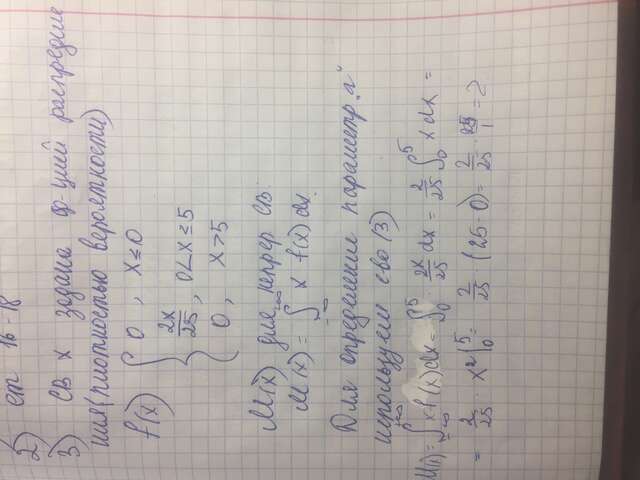 2) ст 16-18
3) СВ х задана ф-цией распределе
ния (плотностью вероятности)
f(x) { 0, x≤0
2x/25, 0<x≤5
0, x>5
M(x) для непрер СВ:
M(x) = ∫_{-∞}^{+∞} x f(x) dx.
Для определение параметр "а"
используем сво (3)
M(x) = ∫_{-∞}^{+∞} x f(x) dx = ∫_0^5 · 2x/25 dx = 2/25 ∫_0^5 x dx =
= 2/25 · x² |_0^5 = 2/25 · (25-0) = 2/25 · 25/1 = 2